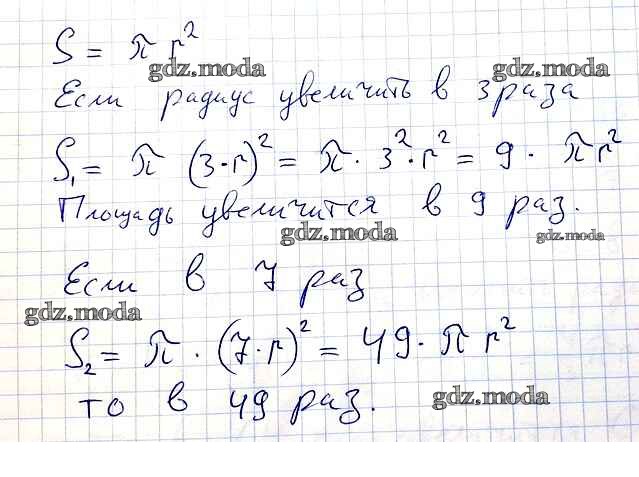 S = π r²
gdz.moda gdz.moda
Если радиус увеличить в 3 раза
S₁ = π (3·r)² = π · 3² · r² = 9 · πr²
Площадь увеличится в 9 раз.
gdz.moda gdz.moda
Если в 7 раз
gdz.moda
S₂ = π · (7·r)² = 49 · π r²
то в 49 раз.
gdz.moda